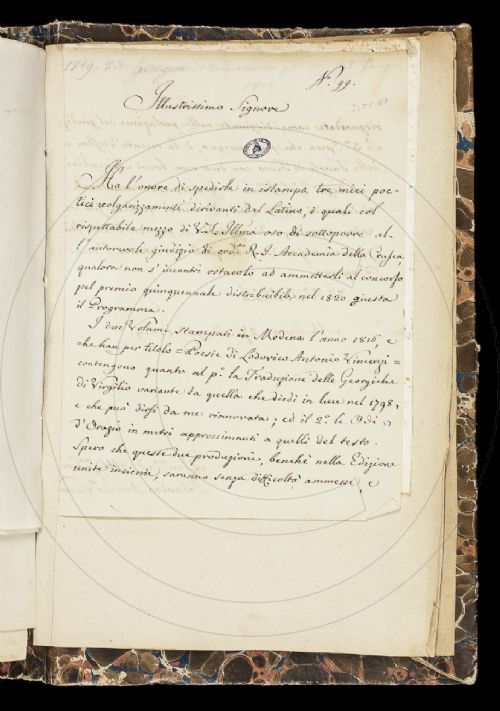 1819. 23. Giugno
N.° 99.
Illustrissimo Signore
Ho l'onore di spedirle in istampa tre miei poe-
tici volgarizzamenti derivanti dal Latino, i quali col
rispettabile mezzo di V. S. Illma oso di sottoporre al-
l'autorevole giudizio di R. I. Accademia della Crusca
qualora non s'incontri ostacolo ad ammetterli al concorso
pel premio quinquennale distribuibile nel 1820 giusta
il Programma.
I due Volumi stampati in Modena l'anno 1816, e
che han per titolo = Poesie di Lodovico Antonio Vincenzi =
contengono quanto al p.° la Traduzione delle Georgiche
di Virgilio variante da quella che diedi in luce nel 1798,
e che può dirsi da me rinnovata; ed il 2.° le Odi
d'Orazio in metri approssimanti a quelli del testo.
Spero che queste due produzioni, benchè nella Edizione
unite insieme, saranno senza difficoltà ammesse, e